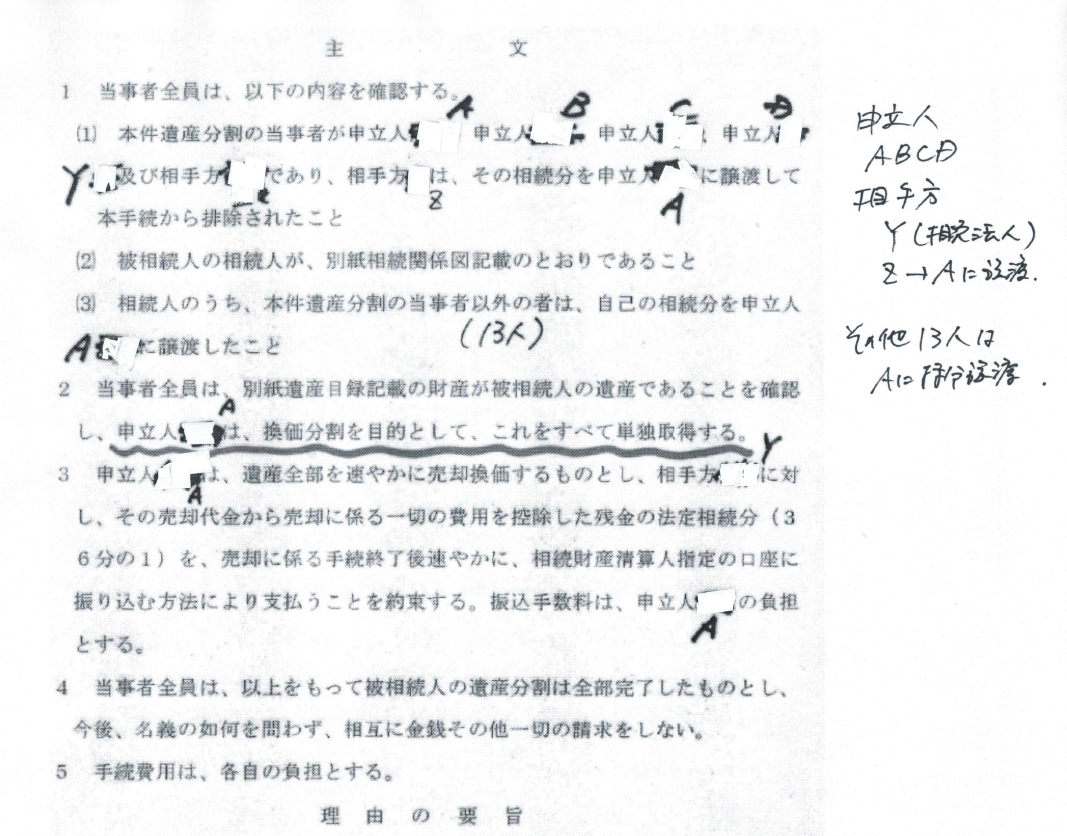 主 文
1 当事者全員は、以下の内容を確認する。
A B C D
⑴ 本件遺産分割の当事者が申立人 申立人 申立人 申立人
Y 及び相手方 であり、相手方 は、その相続分を申立人 に譲渡して
Z A
本手続から排除されたこと
⑵ 被相続人の相続人が、別紙相続関係図記載のとおりであること
⑶ 相続人のうち、本件遺産分割の当事者以外の者は、自己の相続分を申立人
(13人)
A に譲渡したこと
2 当事者全員は、別紙遺産目録記載の財産が被相続人の遺産であることを確認
A
し、申立人 は、換価分割を目的として、これをすべて単独取得する。
Y
3 申立人 は、遺産全部を速やかに売却換価するものとし、相手方 に対
A
し、その売却代金から売却に係る一切の費用を控除した残金の法定相続分(3
6分の1)を、売却に係る手続終了後速やかに、相続財産清算人指定の口座に
振り込む方法により支払うことを約束する。振込手数料は、申立人 の負担
A
とする。
4 当事者全員は、以上をもって被相続人の遺産分割は全部完了したものとし、
今後、名義の如何を問わず、相互に金銭その他一切の請求をしない。
5 手続費用は、各自の負担とする。
理由の要旨
申立人
ABCD
相手方
Y(相続法人)
Z→Aに譲渡.
その他13人は
Aに持分譲渡.